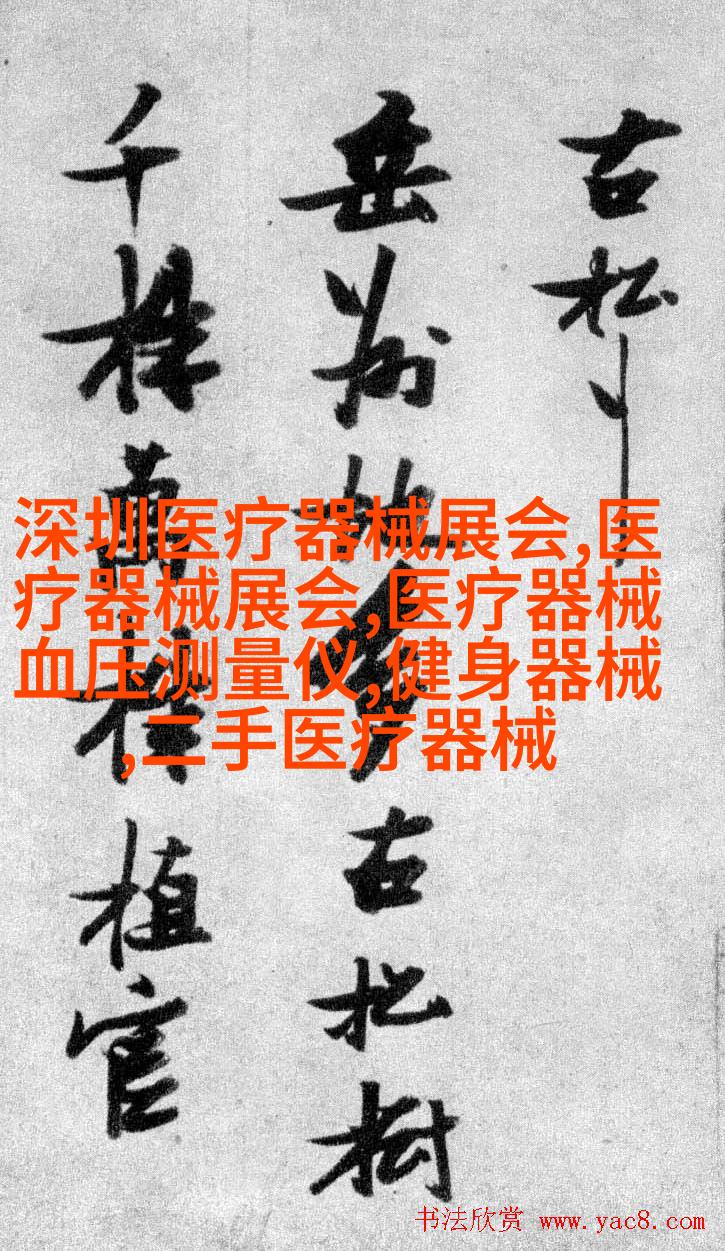 古松
岳州地多古松樹
千株萬株植官
深圳医疗器械展会,医
疗器械展会,医疗器械
血压测量仪,健身器械
,二手医疗器械
书法欣赏 www.yac8.com